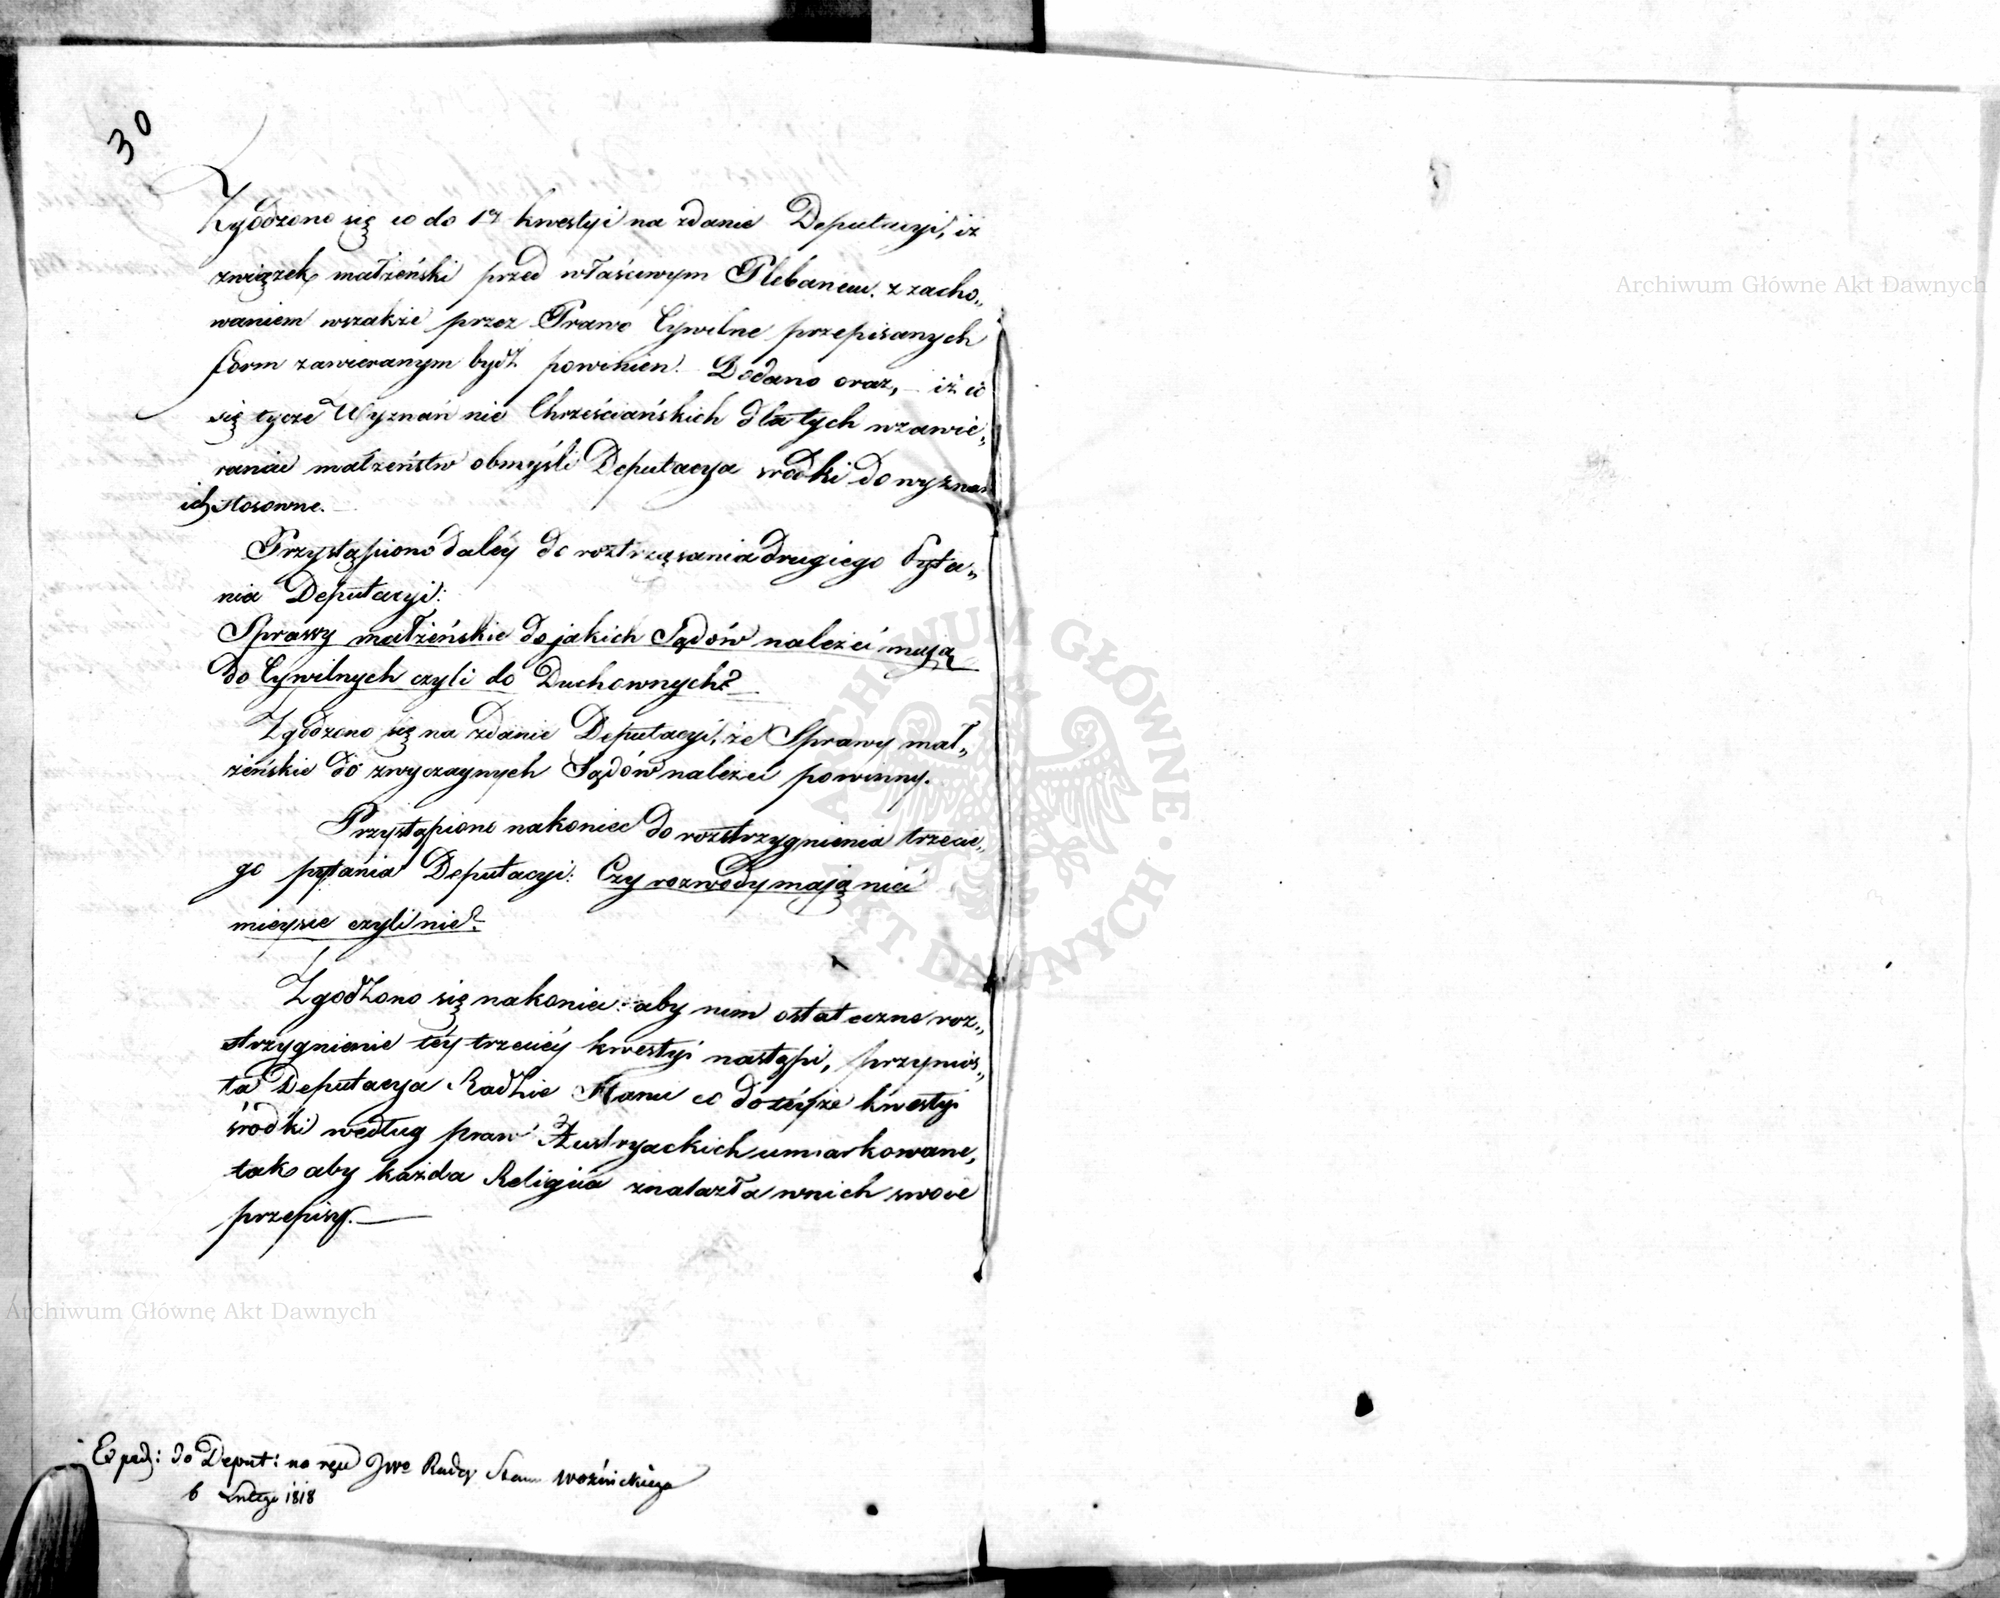 30
Zgodzono się co do 1ej kwestyi na zdanie Deputacyi, iż
związek małżeński przed właściwym Plebanem, z zacho„
waniem wszakże przez Prawo Cywilne przepisanych
form zawieranym bydź powinien. Dodano oraz, iż co
się tycze Wyznań nie Chrześciańskich dla tych w zawie„
raniu małżeństw obmyśli Deputacya srodki do wyznań
ich stosowne.
Przystąpiono daléy do roztrząsania drugiego Pyta„
nia Deputacyi:
Sprawy małżeńskie do jakich Sądów należeć mają
do Cywilnych czyli do Duchownych?
Zgodzono się na zdanie Deputacyi, że Sprawy mał„
żeńskie do zwyczaynych Sądów należeć powinny.
Przystąpiono nakoniec do rozstrzygnienia trzecie„
go pytania Deputacyi: Czy rozwody mają mieć
mieysce czyli nie?
Zgodzono się nakoniec: aby nim ostateczne roz„
strzygnienie téy trzeciéy kwestyi nastąpi, przynios„
ła Deputacya Radzie Stanu co do téyże kwestyi
środki według praw Austryackich umiarkowane,
tak aby każda Religia znalazła w nich swoie
przepisy.
Exped: do Deput: na ręce JWo Radcy Stanu Woźnickiego
6 Lutego 1818
Archiwum Główne Akt Dawnych
Archiwum Główne Akt Dawnych
ARCHIWUM GŁÓWNE · AKT DAWNYCH ·